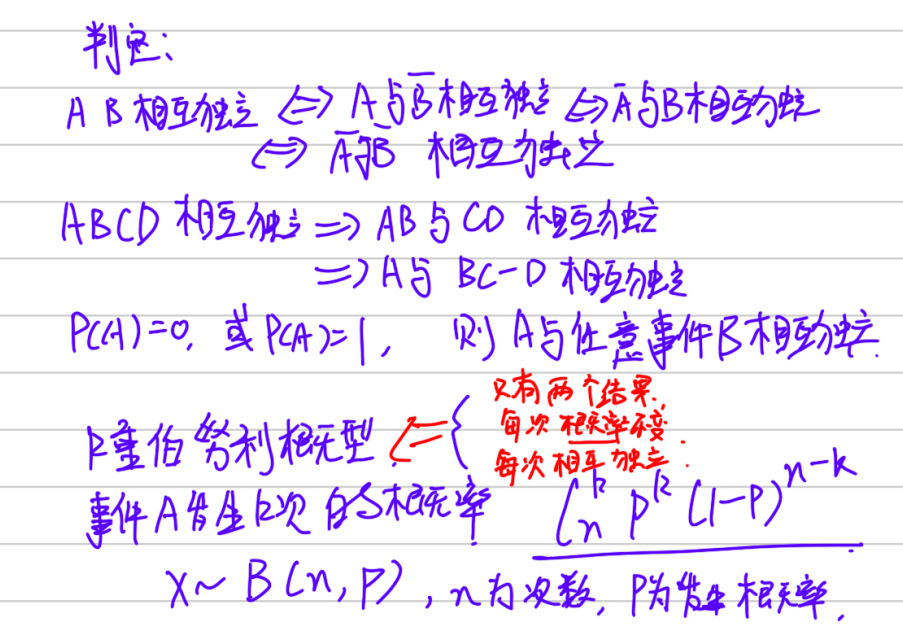 判定:
A B 相互独立 ⇔ A与B̅相互独立 ⇔ A̅与B相互独立
⇔ A̅与B̅ 相互独立
ABCD 相互独立 ⇒ AB与CD 相互独立
⇒ A与 BC-D 相互独立
P(A)=0, 或P(A)=1, 则A与任意事件B相互独立.
只有两个结果,
k重伯努利概型. ⇐ { 每次概率不变.
每次相互独立.
事件A发生k次的概率 C_n^k p^k (1-p)^{n-k}
X~B(n,p), n为次数, P为发生概率.